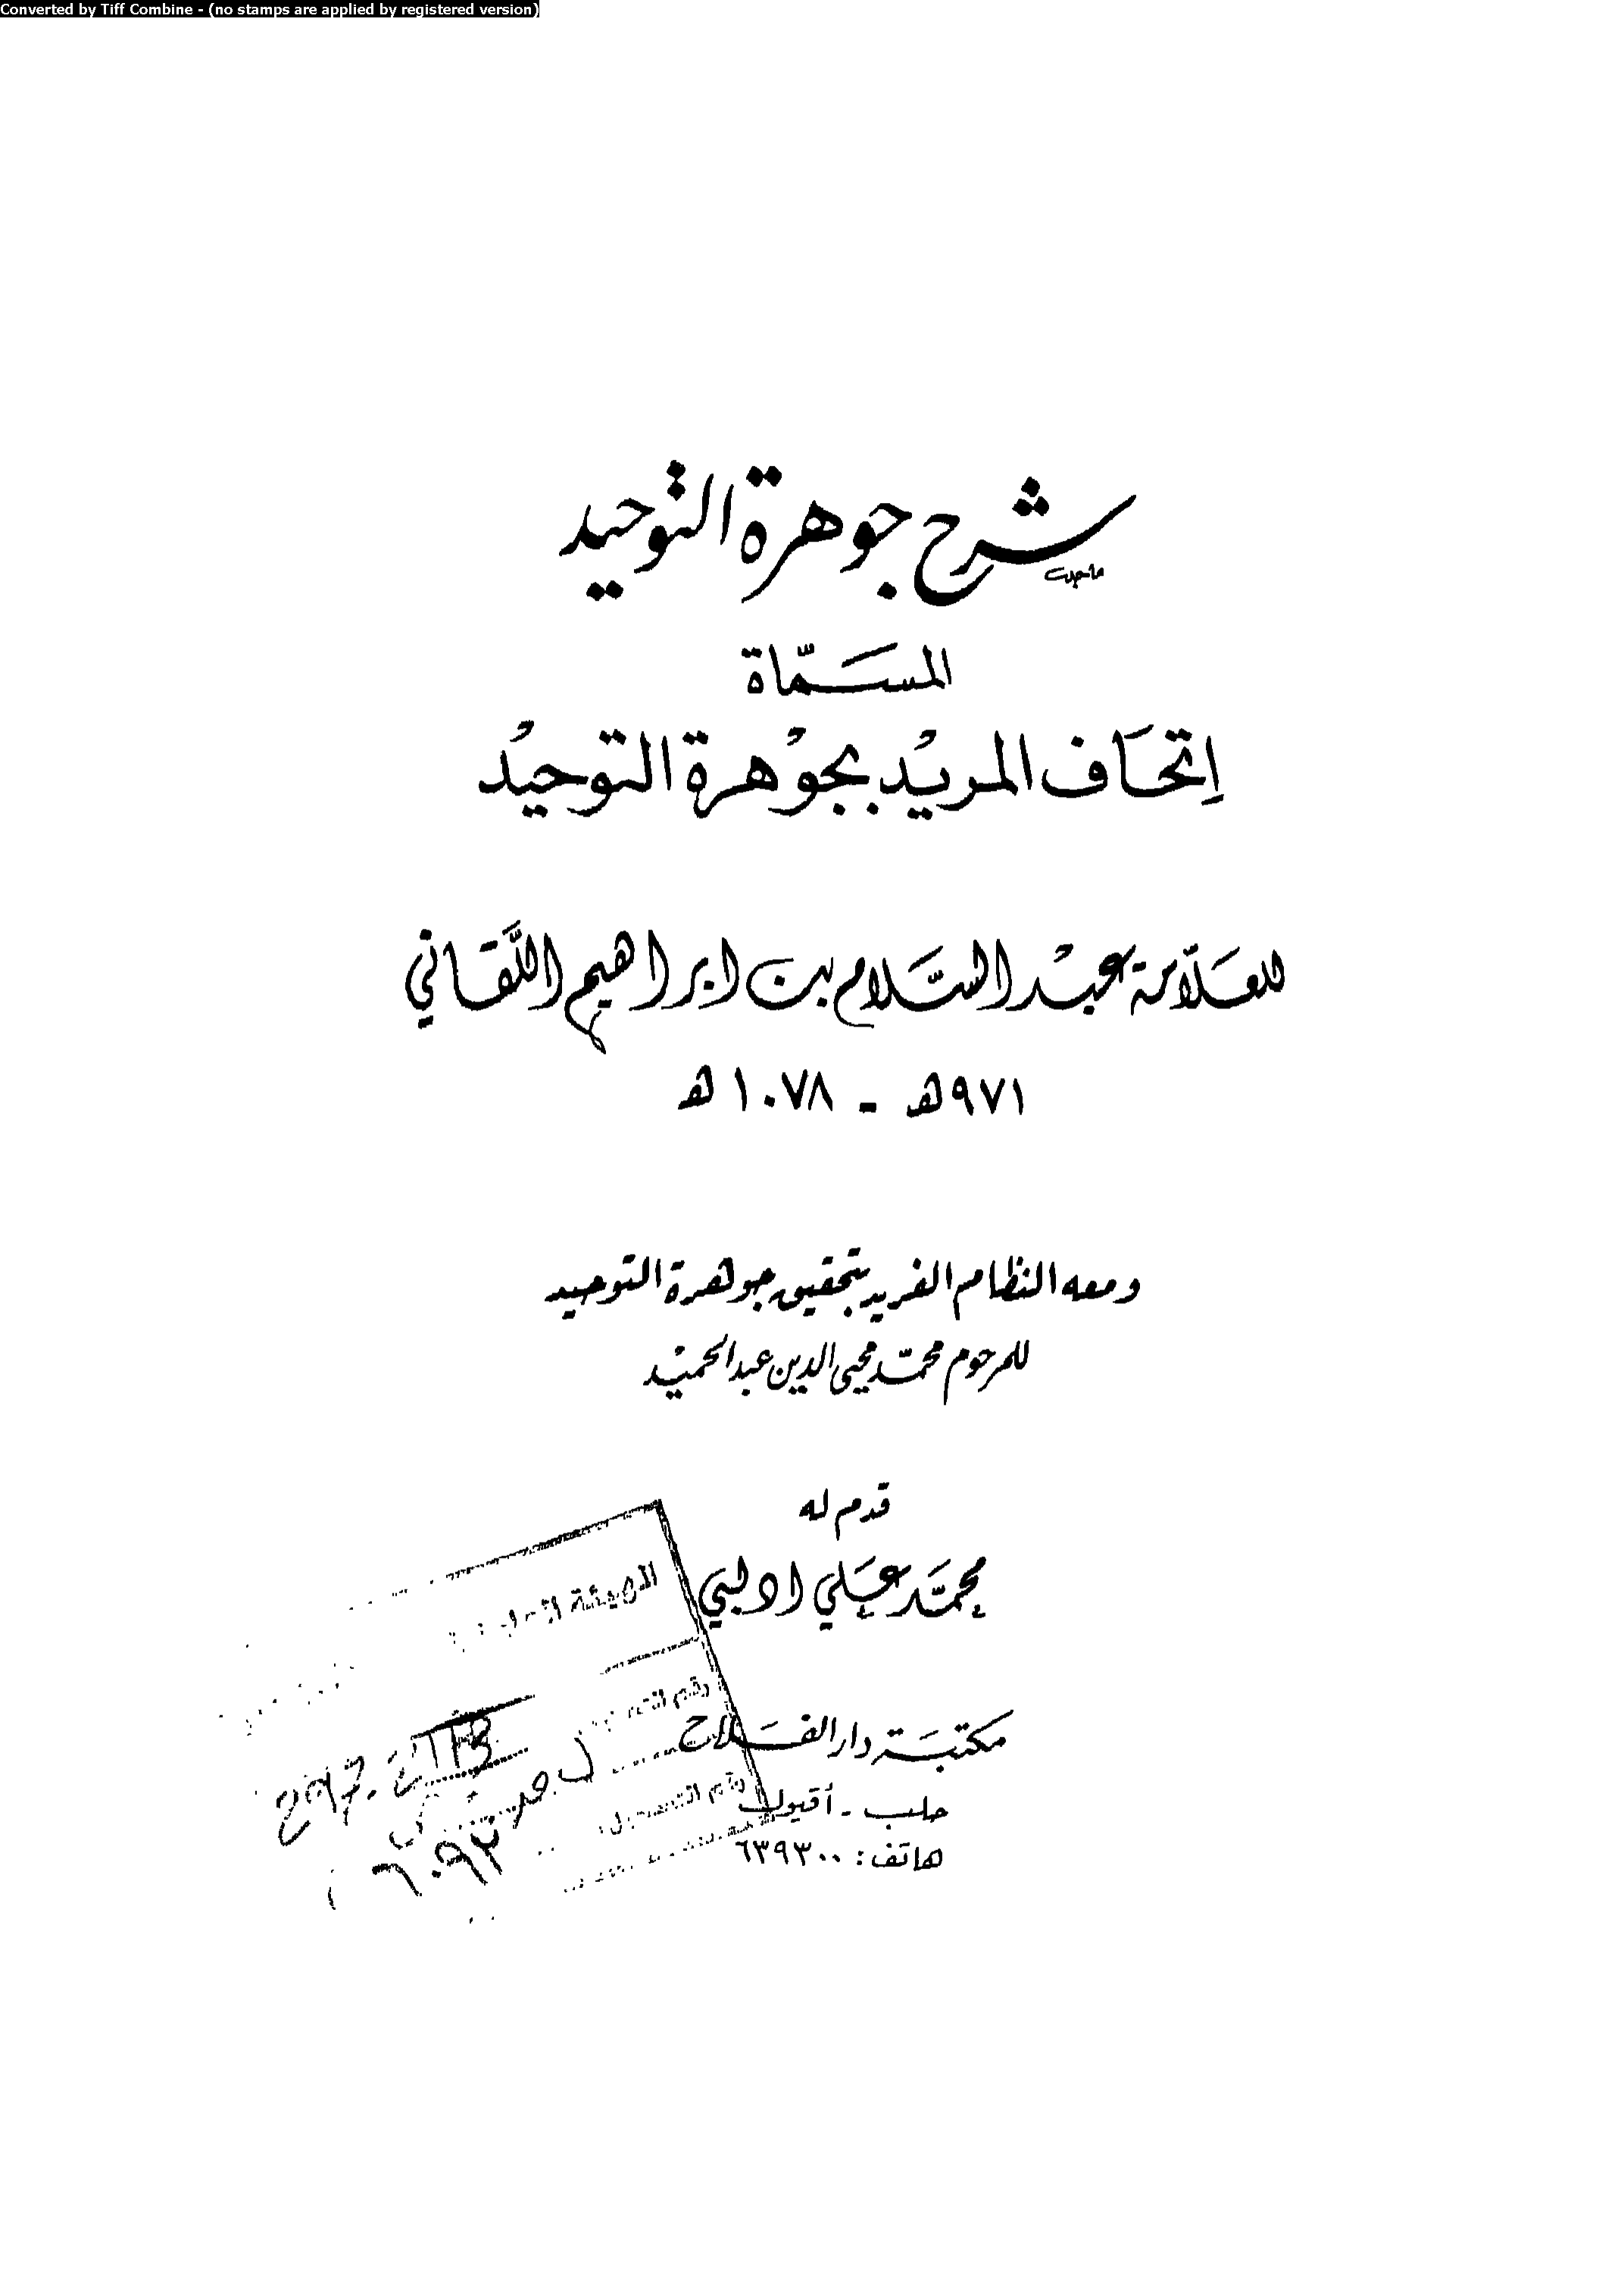 Converted by Tiff Combine - (no stamps are applied by registered version)
شرح جوهرة التوحيد
المسمّاة
إتحَاف المريْد بجوْهرة التوحيْد
للعلّامة عبْد السَّلام بن ابراهيم اللَّقاني
٩٧١ هـ - ١٠٧٨ هـ
ومعه النظام الفريد بتحقيق جوهرة التوحيد
للمرحوم محمّد محيي الدين عبد الحميْد
قدم له
محمَّد عَلي ادلبي
الهيئة
رقم
مكتبَة دار الفَلاح
رقم التسجيل
حلب - أقيول
٦٠٩٢
هاتف : ٦٣٩٣٠٠